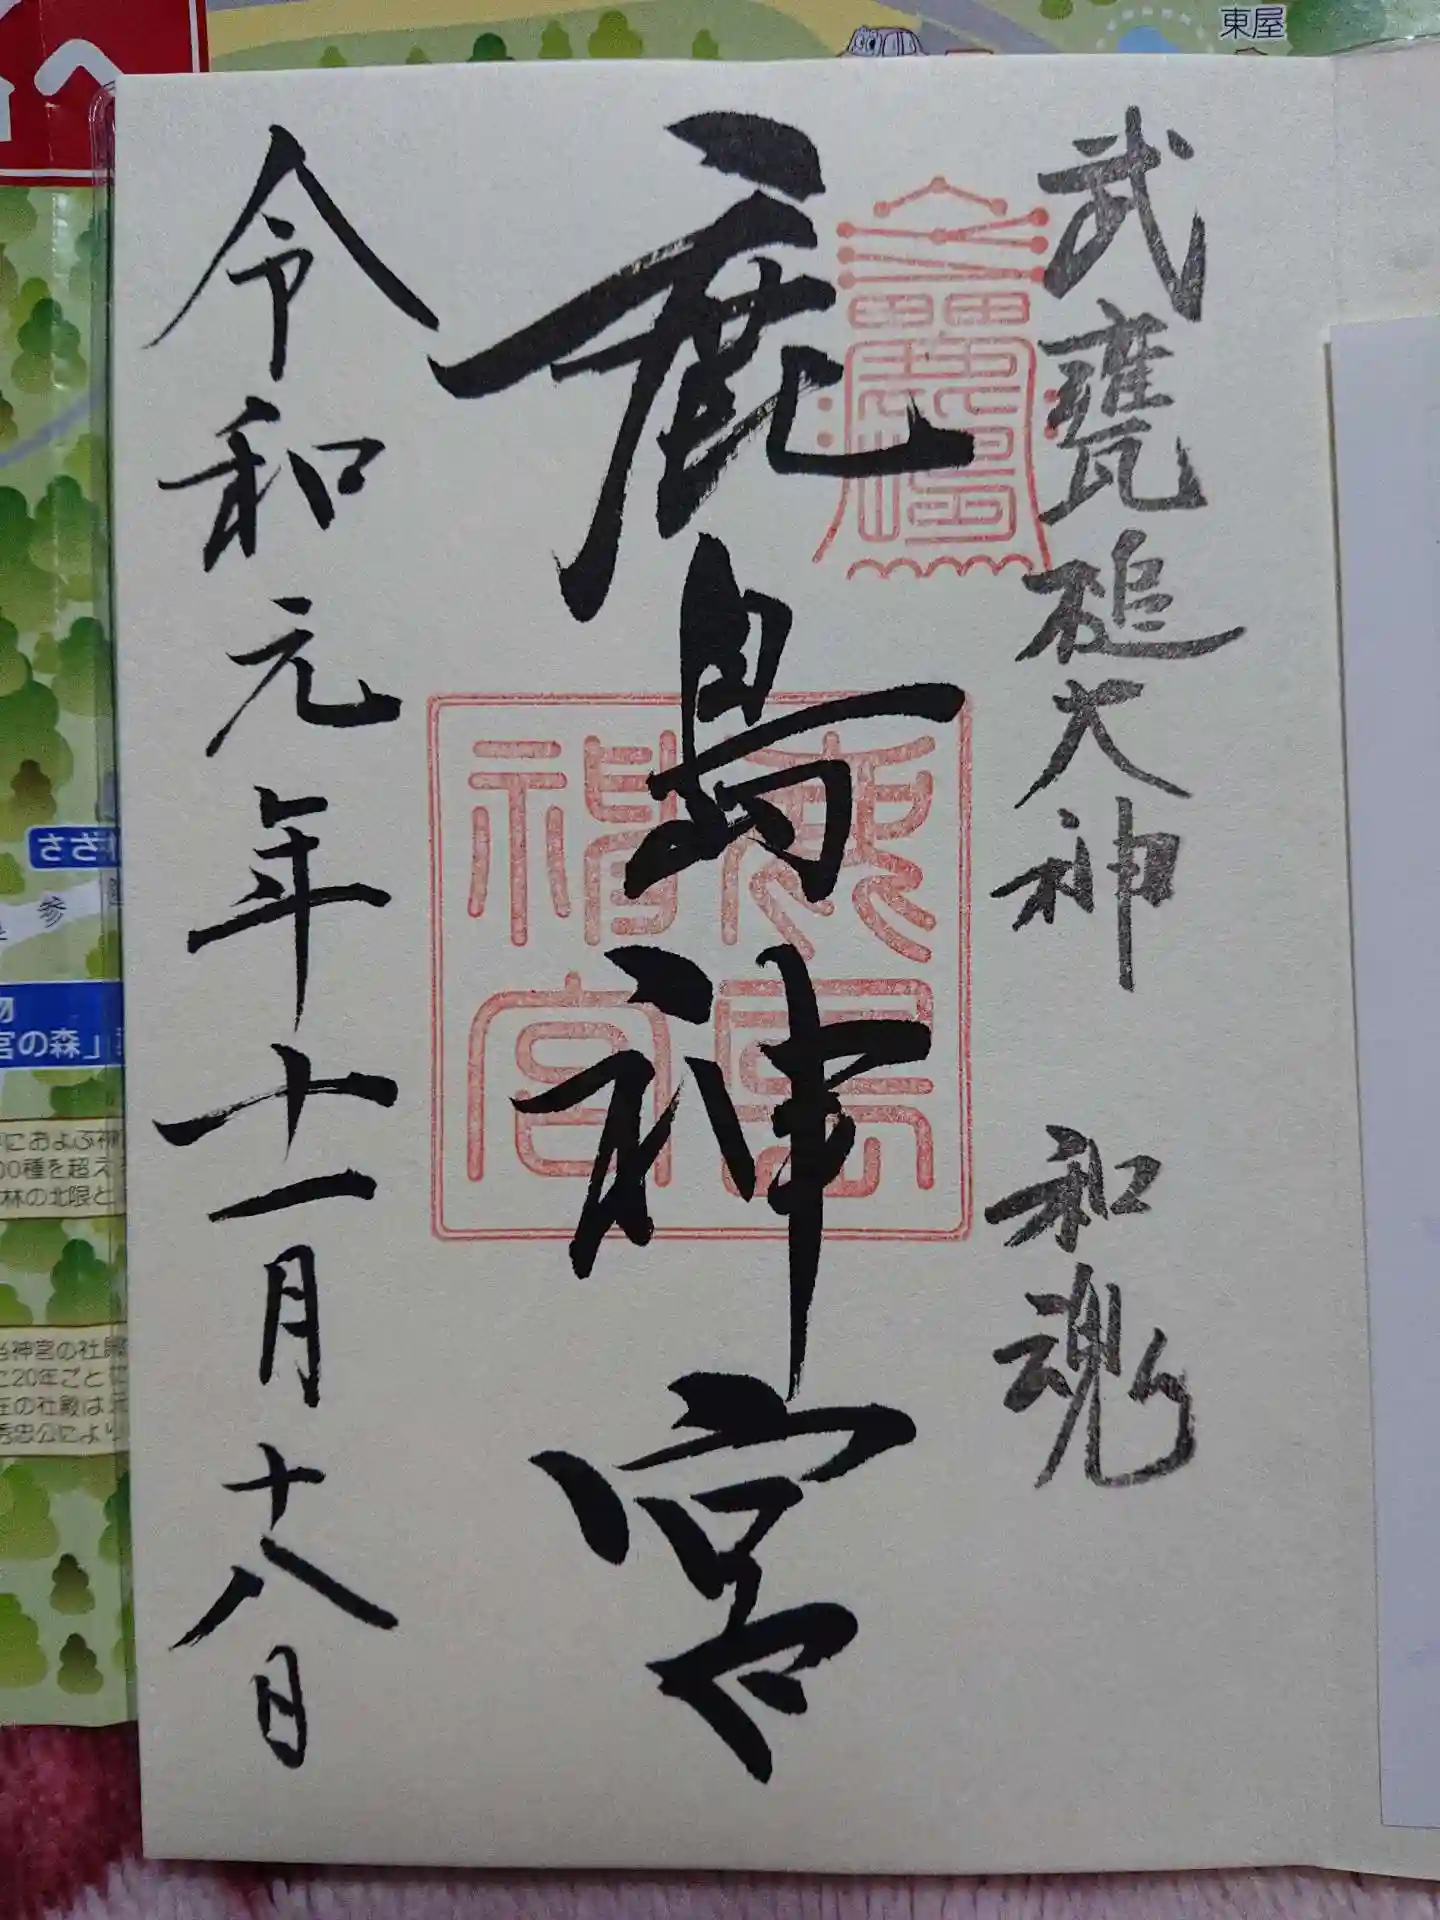 武甕槌大神 和魂
鹿島神宮
令和元年十一月十八日
鹿島神宮
東屋
へ
さざ
参
宮の森」
におよぶ
00種を超え
林の北限と
当神宮の社
に20年ごと
在の社殿は
秀忠公により